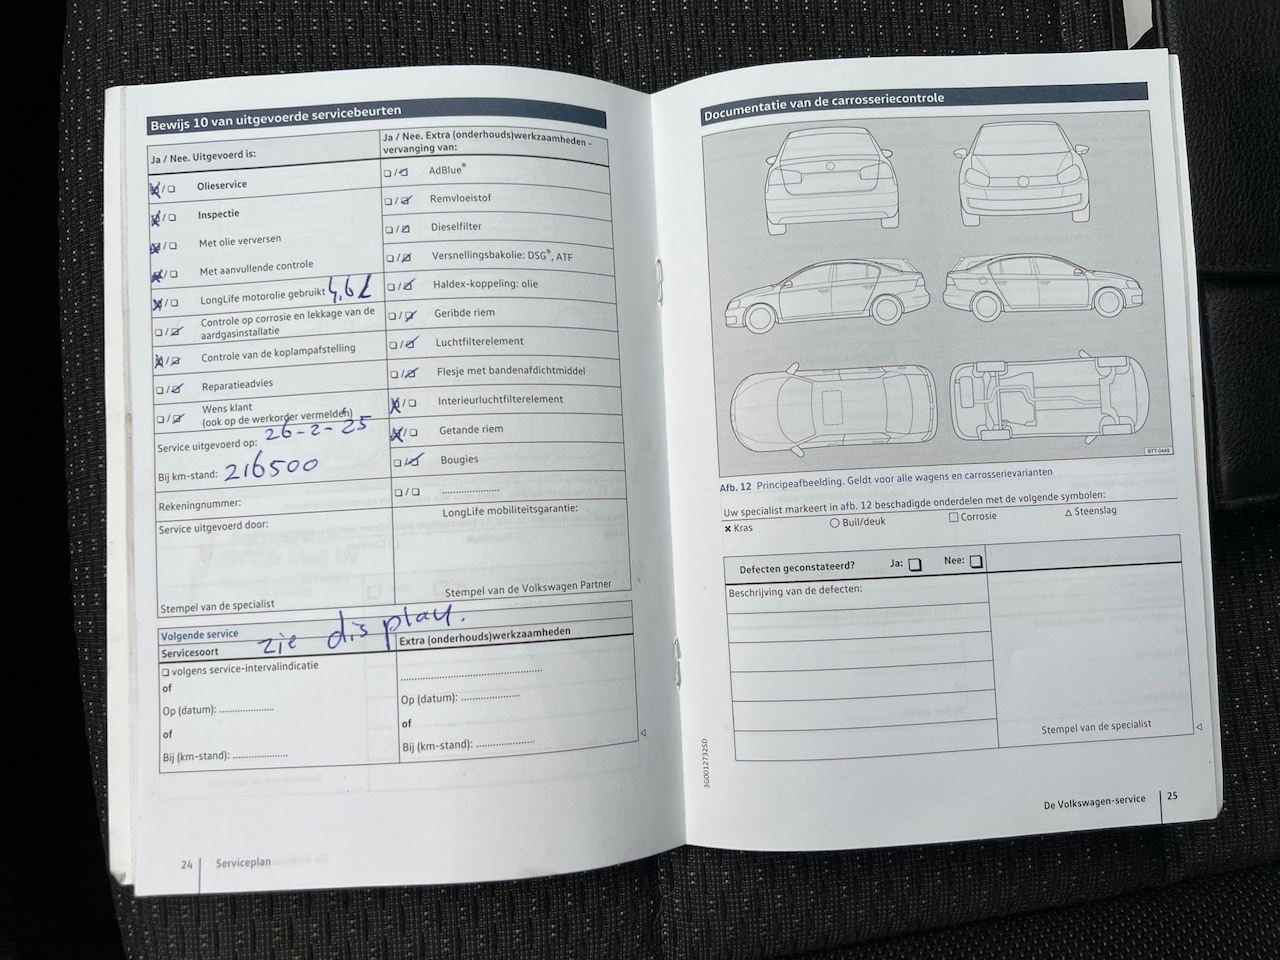 Bewijs 10 van uitgevoerde servicebeurten
Ja / Nee. Uitgevoerd is:
Olieservice
Inspectie
Met olie verversen
Met aanvullende controle
LongLife motorolie gebruikt 4,6 L
Controle op corrosie en lekkage van de
aardgasinstallatie
Controle van de koplampafstelling
Reparatieadvies
Wens klant
(ook op de werkorder vermelden)
Service uitgevoerd op: 26-2-25
Bij km-stand: 216500
Rekeningnummer:
Service uitgevoerd door:
Stempel van de specialist
Ja / Nee. Extra (onderhouds)werkzaamheden -
vervanging van:
AdBlue®
Remvloeistof
Dieselfilter
Versnellingsbakolie: DSG®, ATF
Haldex-koppeling: olie
Geribde riem
Luchtfilterelement
Flesje met bandenafdichtmiddel
Interieurluchtfilterelement
Getande riem
Bougies
....................
LongLife mobiliteitsgarantie:
Stempel van de Volkswagen Partner
Volgende service
zie display.
Servicesoort
volgens service-intervalindicatie
of
Op (datum): ...................
of
Bij (km-stand): ...................
Extra (onderhouds)werkzaamheden
..................................................
Op (datum): ....................
of
Bij (km-stand): ....................
24
Serviceplan
Documentatie van de carrosseriecontrole
BTT-0449
Afb. 12 Principeafbeelding. Geldt voor alle wagens en carrosserievarianten
Uw specialist markeert in afb. 12 beschadigde onderdelen met de volgende symbolen:
× Kras
○ Buil/deuk
□ Corrosie
△ Steenslag
Defecten geconstateerd? Ja: Nee:
Beschrijving van de defecten:
Stempel van de specialist
3G0012732SD
De Volkswagen-service
25